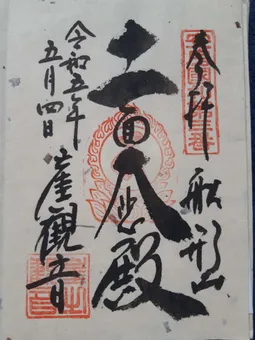 奉拝
船形山
十一面大悲殿
令和五年
五月四日
崖觀音